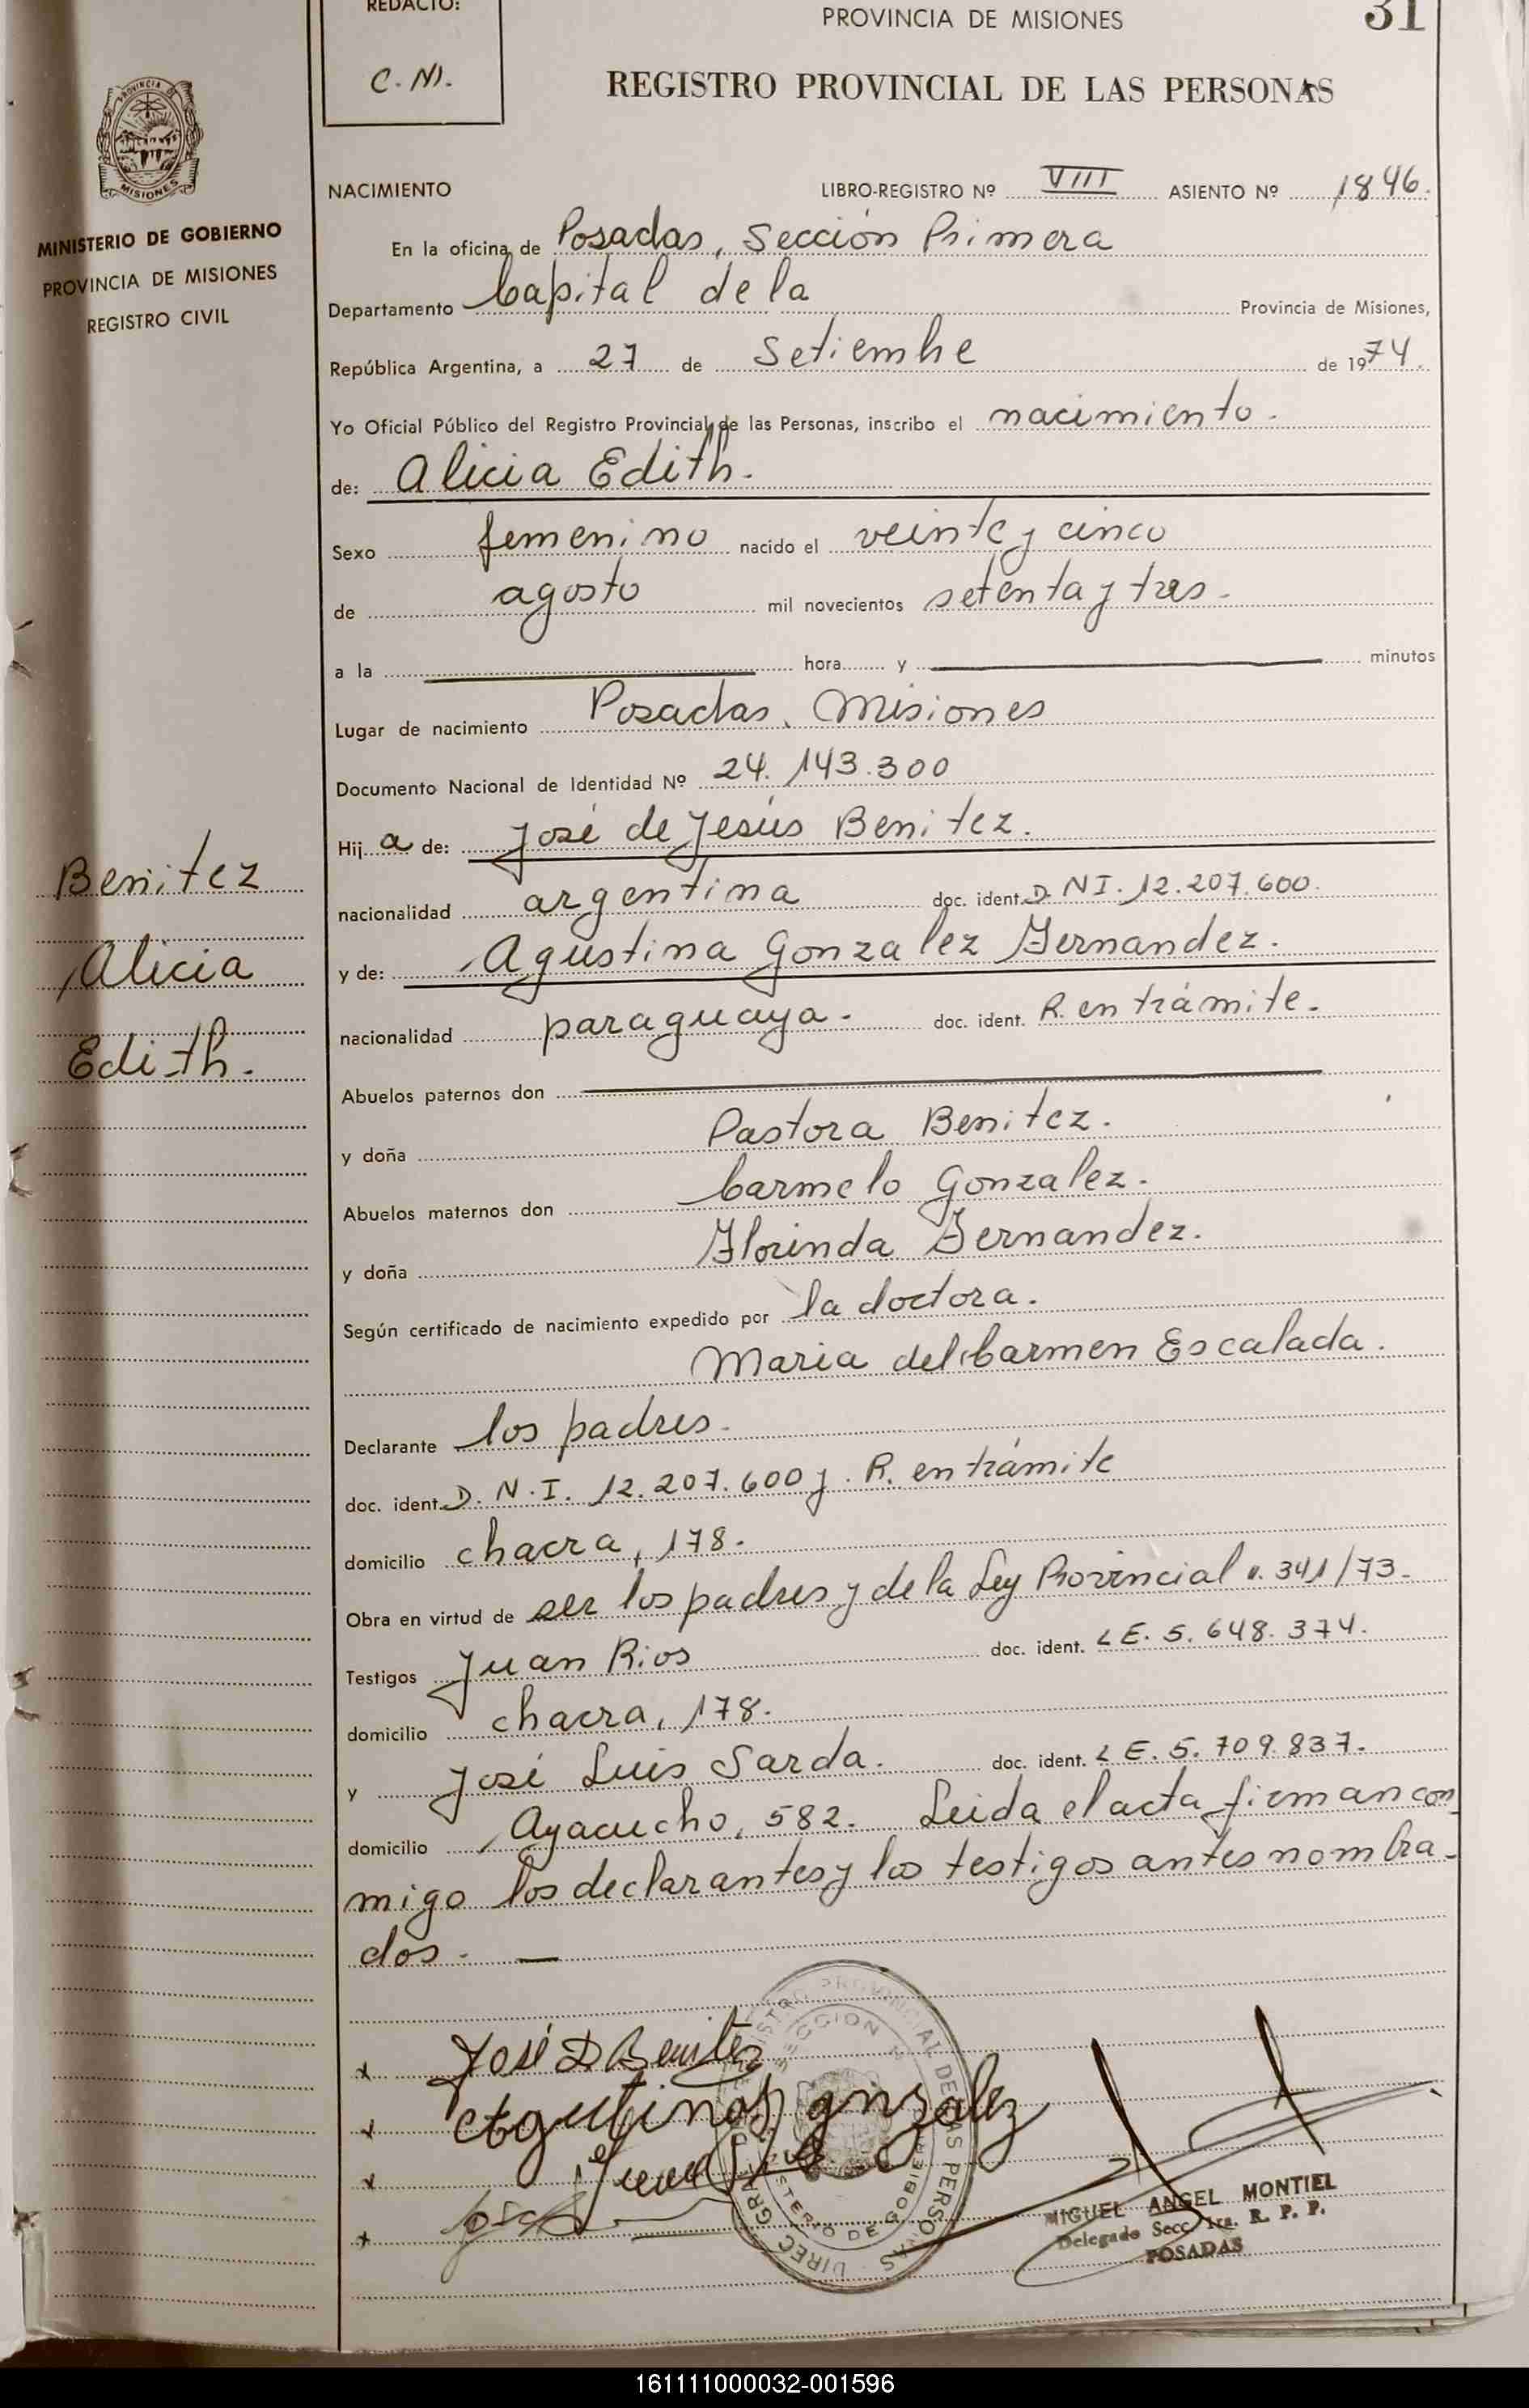 REDACTO:
C. M.
PROVINCIA DE MISIONES
31
REGISTRO PROVINCIAL DE LAS PERSONAS
MISIONES
MINISTERIO DE GOBIERNO
PROVINCIA DE MISIONES
REGISTRO CIVIL
NACIMIENTO LIBRO-REGISTRO Nº VIII ASIENTO Nº 1846.
En la oficina de Posadas, Sección Primera
Departamento Capital de la Provincia de Misiones,
República Argentina, a 27 de Setiembre de 1974.
Yo Oficial Público del Registro Provincial de las Personas, inscribo el nacimiento.
de: Alicia Edith.
Sexo femenino nacido el veinte y cinco
de agosto mil novecientos setenta y tres.
a la hora y minutos
Lugar de nacimiento Posadas, Misiones
Documento Nacional de Identidad Nº 24.143.300
Hij a de: José de Jesús Benitez.
Benitez
nacionalidad argentina doc. ident. D.NI. 12.207.600.
Alicia
y de: Agustina Gonzalez Fernandez.
nacionalidad paraguaya. doc. ident. R. en trámite.
Edith.
Abuelos paternos don
y doña Pastora Benitez.
Abuelos maternos don Carmelo Gonzalez.
y doña Florinda Fernandez.
Según certificado de nacimiento expedido por la doctora.
Maria del Carmen Escalada.
Declarante los padres.
doc. ident. D. N. I. 12.207.600 y. R. en trámite
domicilio chacra, 178.
Obra en virtud de ser los padres y de la Ley Provincial n. 341/73.
Testigos Juan Rios doc. ident. LE. 5.648.374.
domicilio chacra, 178.
y José Luis Sarda. doc. ident. LE. 5.709.837.
domicilio Ayacucho, 582. Leida el acta firman con
migo los declarantes y los testigos antes nombra-
dos.
José D. Benitez
Agustina gonzalez
Juan
MIGUEL ANGEL MONTIEL
Delegado Secc. 1ra. R. P. P.
POSADAS
161111000032-001596